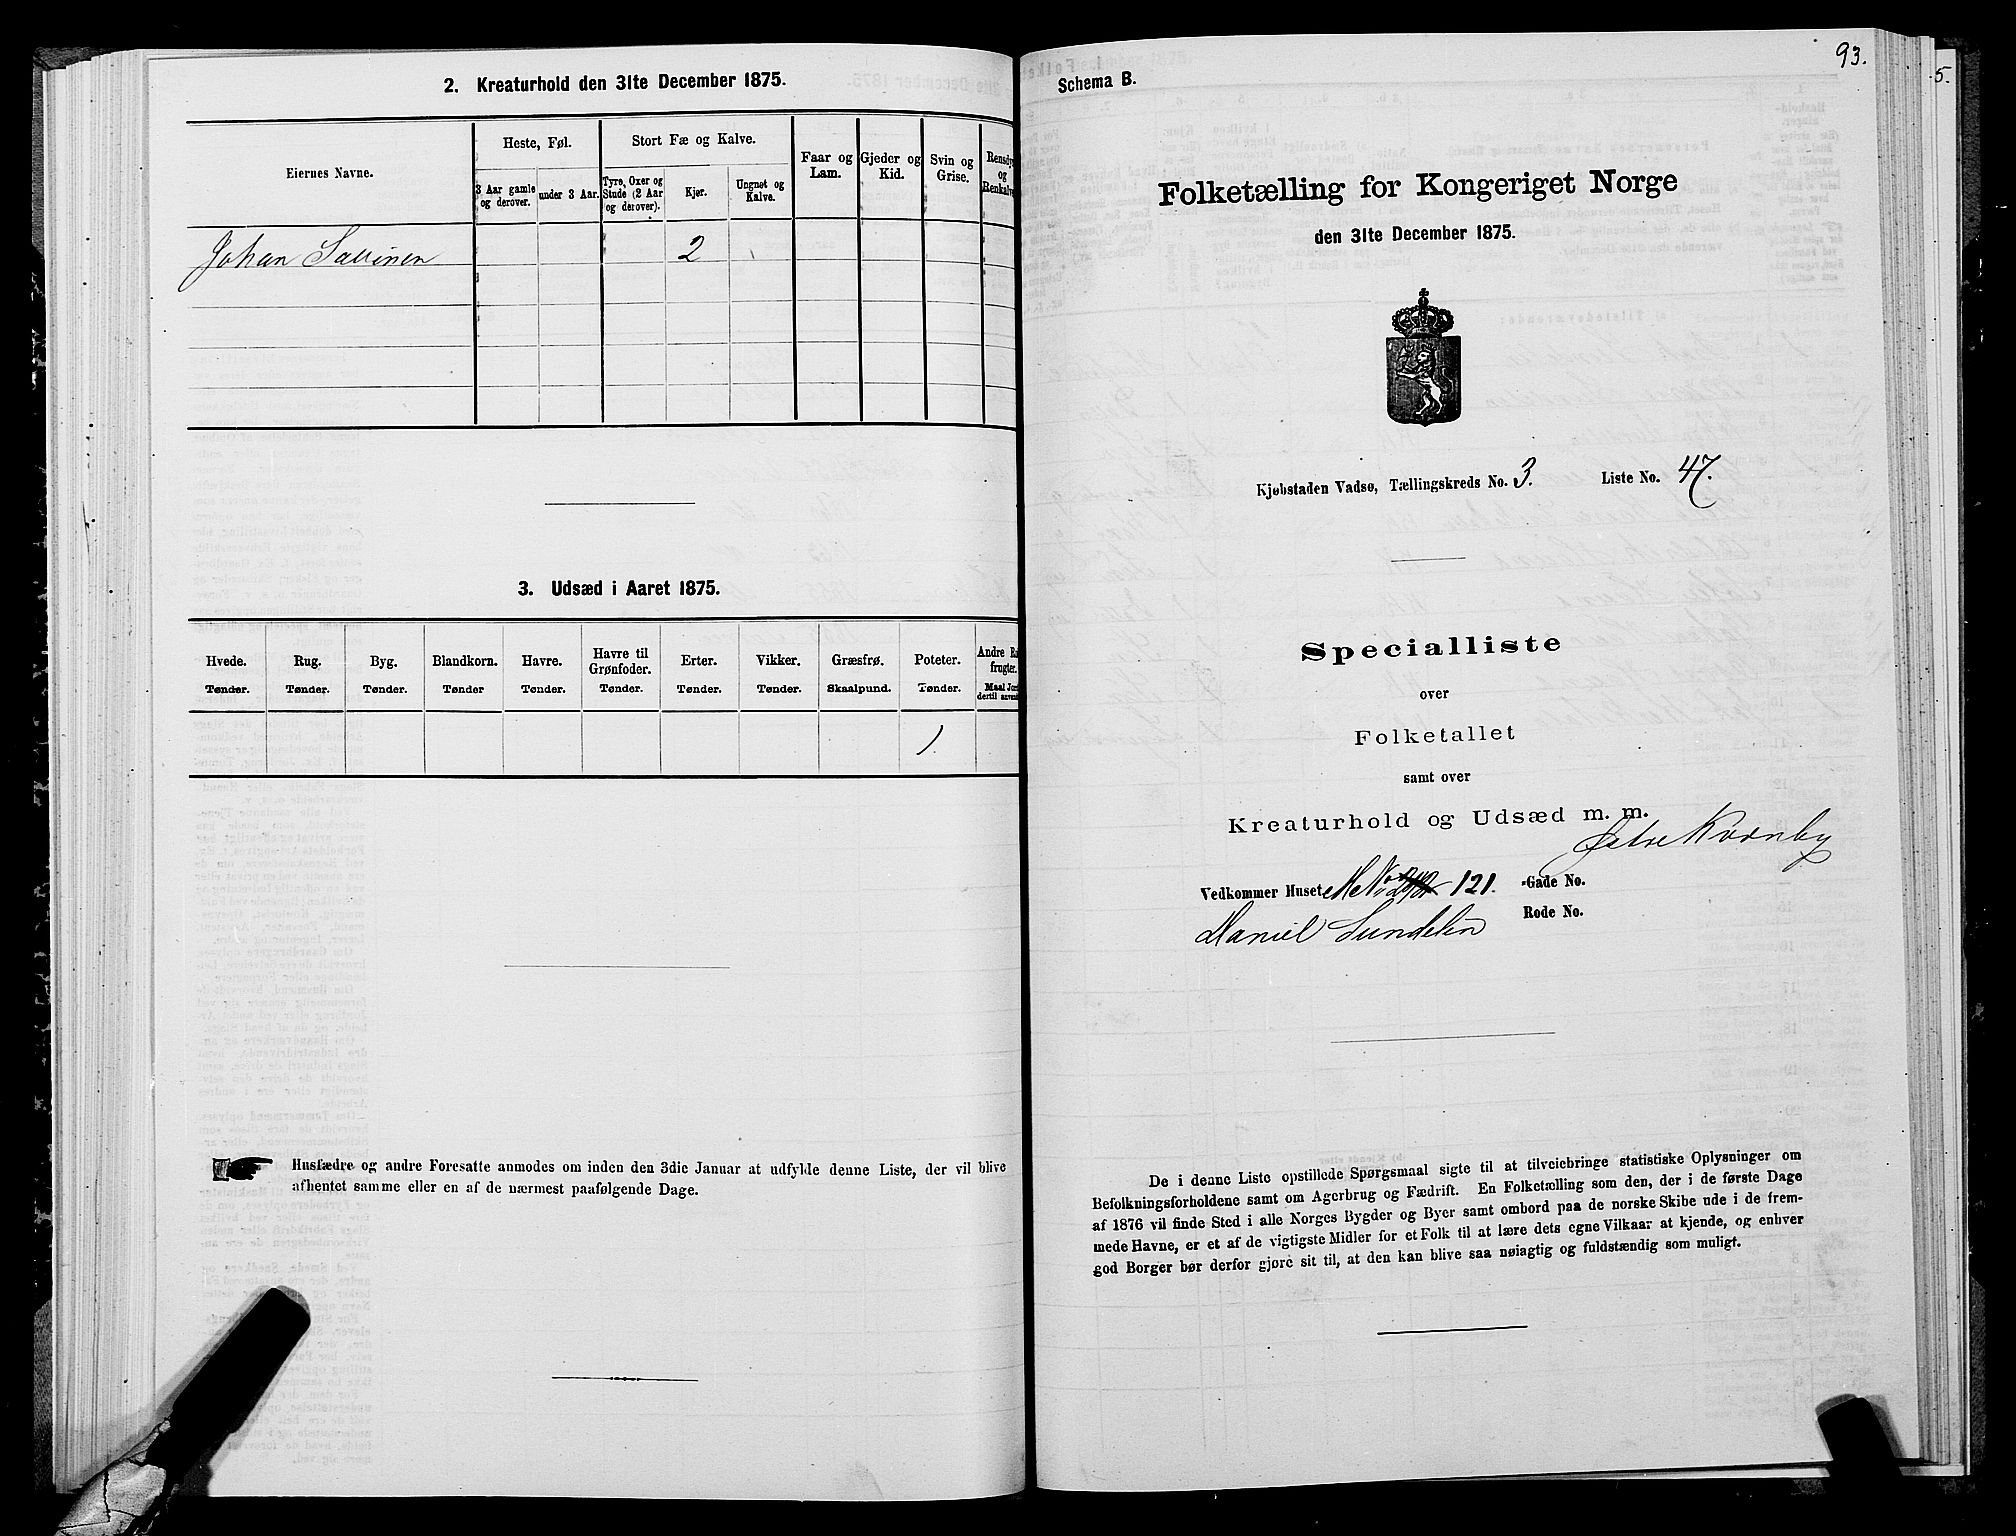 2. Kreaturhold den 31te December 1875.
Eiernes Navne.
Heste, Føl.
3 Aar gamle og derover.
under 3 Aar.
Stort Fæ og Kalve.
Tyre, Oxer og Stude (2 Aar og derover).
Kjør.
Ungnøt og Kalve.
Faar og Lam.
Gjeder og Kid.
Svin og Grise.
Rensdyr og Renkalve
Johan Sallinen 2
3. Udsæd i Aaret 1875.
Hvede. Rug. Byg. Blandkorn. Havre. Havre til Grønfoder. Erter. Vikker. Græsfrø. Poteter. Andre
frugter.
Tønder. Tønder. Tønder. Tønder Tønder. Tønder. Tønder. Tønder. Skaalpund. Tønder. Maal
dertil
1.
Husfædre og andre Foresatte anmodes om inden den 3die Januar at udfylde denne Liste, der vil blive
afhentet samme eller en af de nærmest paafølgende Dage.
93.
5.
Schema B.
Folketælling for Kongeriget Norge
den 31te December 1875.
Kjøbstaden Vadsø, Tællingskreds No. 3. Liste No. 47.
Specialliste
over
Folketallet
samt over
Kreaturhold og Udsæd m. m.
Østre Kvænby
Vedkommer Huset M No 121. -Gade No.
Daniel Sundelin Rode No.
De i denne Liste opstillede Spørgsmaal sigte til at tilveiebringe statistiske Oplysninger om
Befolkningsforholdene samt om Agerbrug og Fædrift. En Folketælling som den, der i de første Dage
af 1876 vil finde Sted i alle Norges Bygder og Byer samt ombord paa de norske Skibe ude i de frem-
mede Havne, er et af de vigtigste Midler for et Folk til at lære dets egne Vilkaar at kjende, og enhver
god Borger bør derfor gjøre sit til, at den kan blive saa nøiagtig og fuldstændig som muligt.